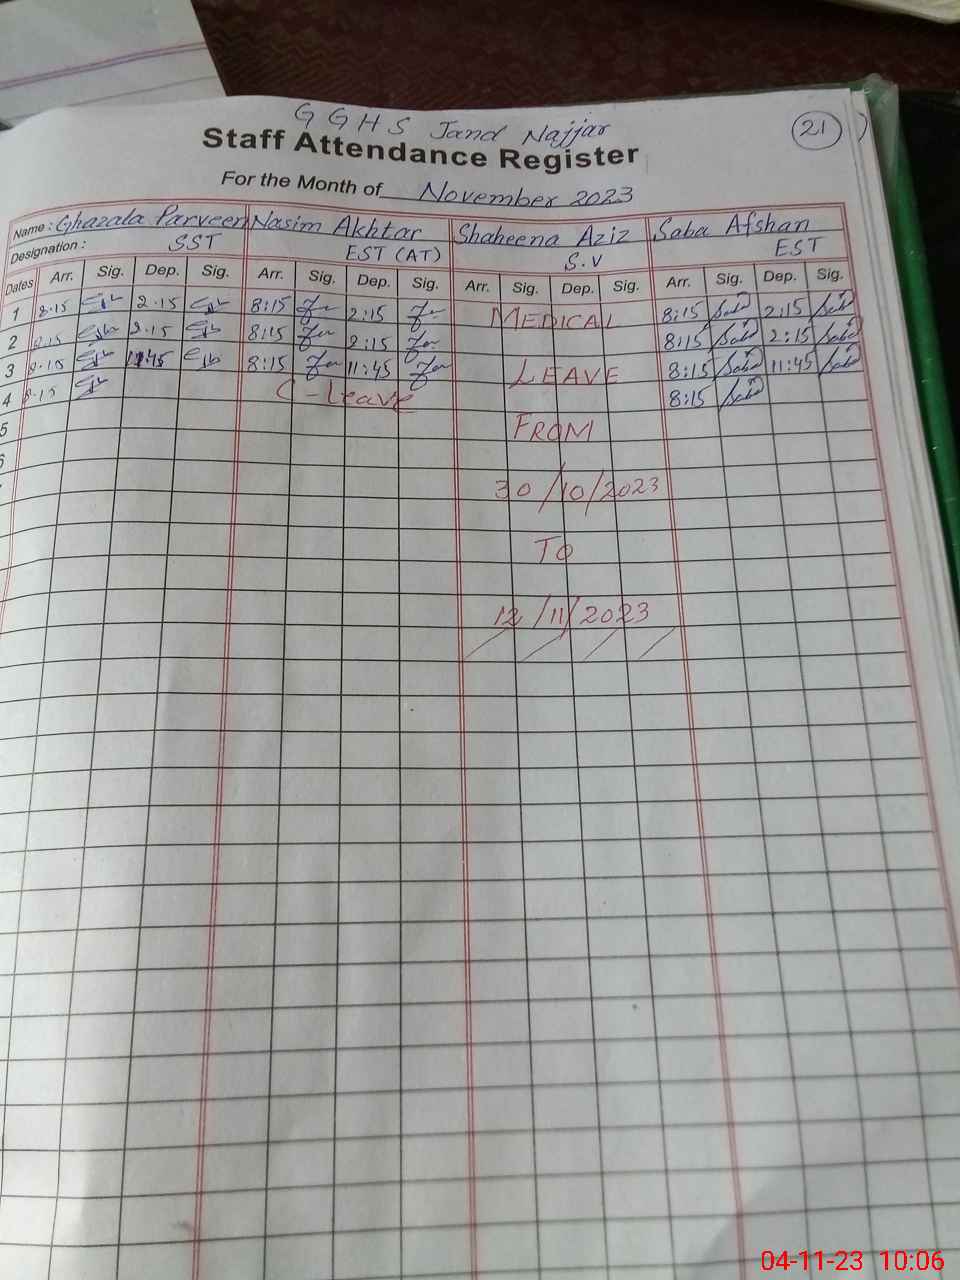 GGHS Jand Najjar
21
Staff Attendance Register
For the Month of November 2023
Name: Ghazala Parveen Nasim Akhtar Shaheena Aziz Saba Afshan
Designation: SST EST (AT) S.V EST
Dates Arr. Sig. Dep. Sig. Arr. Sig. Dep. Sig. Arr. Sig. Dep. Sig. Arr. Sig. Dep. Sig.
1 8.15 2.15 8:15 2:15 MEDICAL 8:15 Saba 2:15 Saba
2 8.15 2.15 8:15 2:15 8:15 Saba 2:15 Saba
3 8.15 11:45 8:15 11:45 LEAVE 8:15 Saba 11:45 Saba
4 8.15 C-Leave 8:15 Saba
5 FROM
6
30/10/2023
TO
12/11/2023
04-11-23 10:06